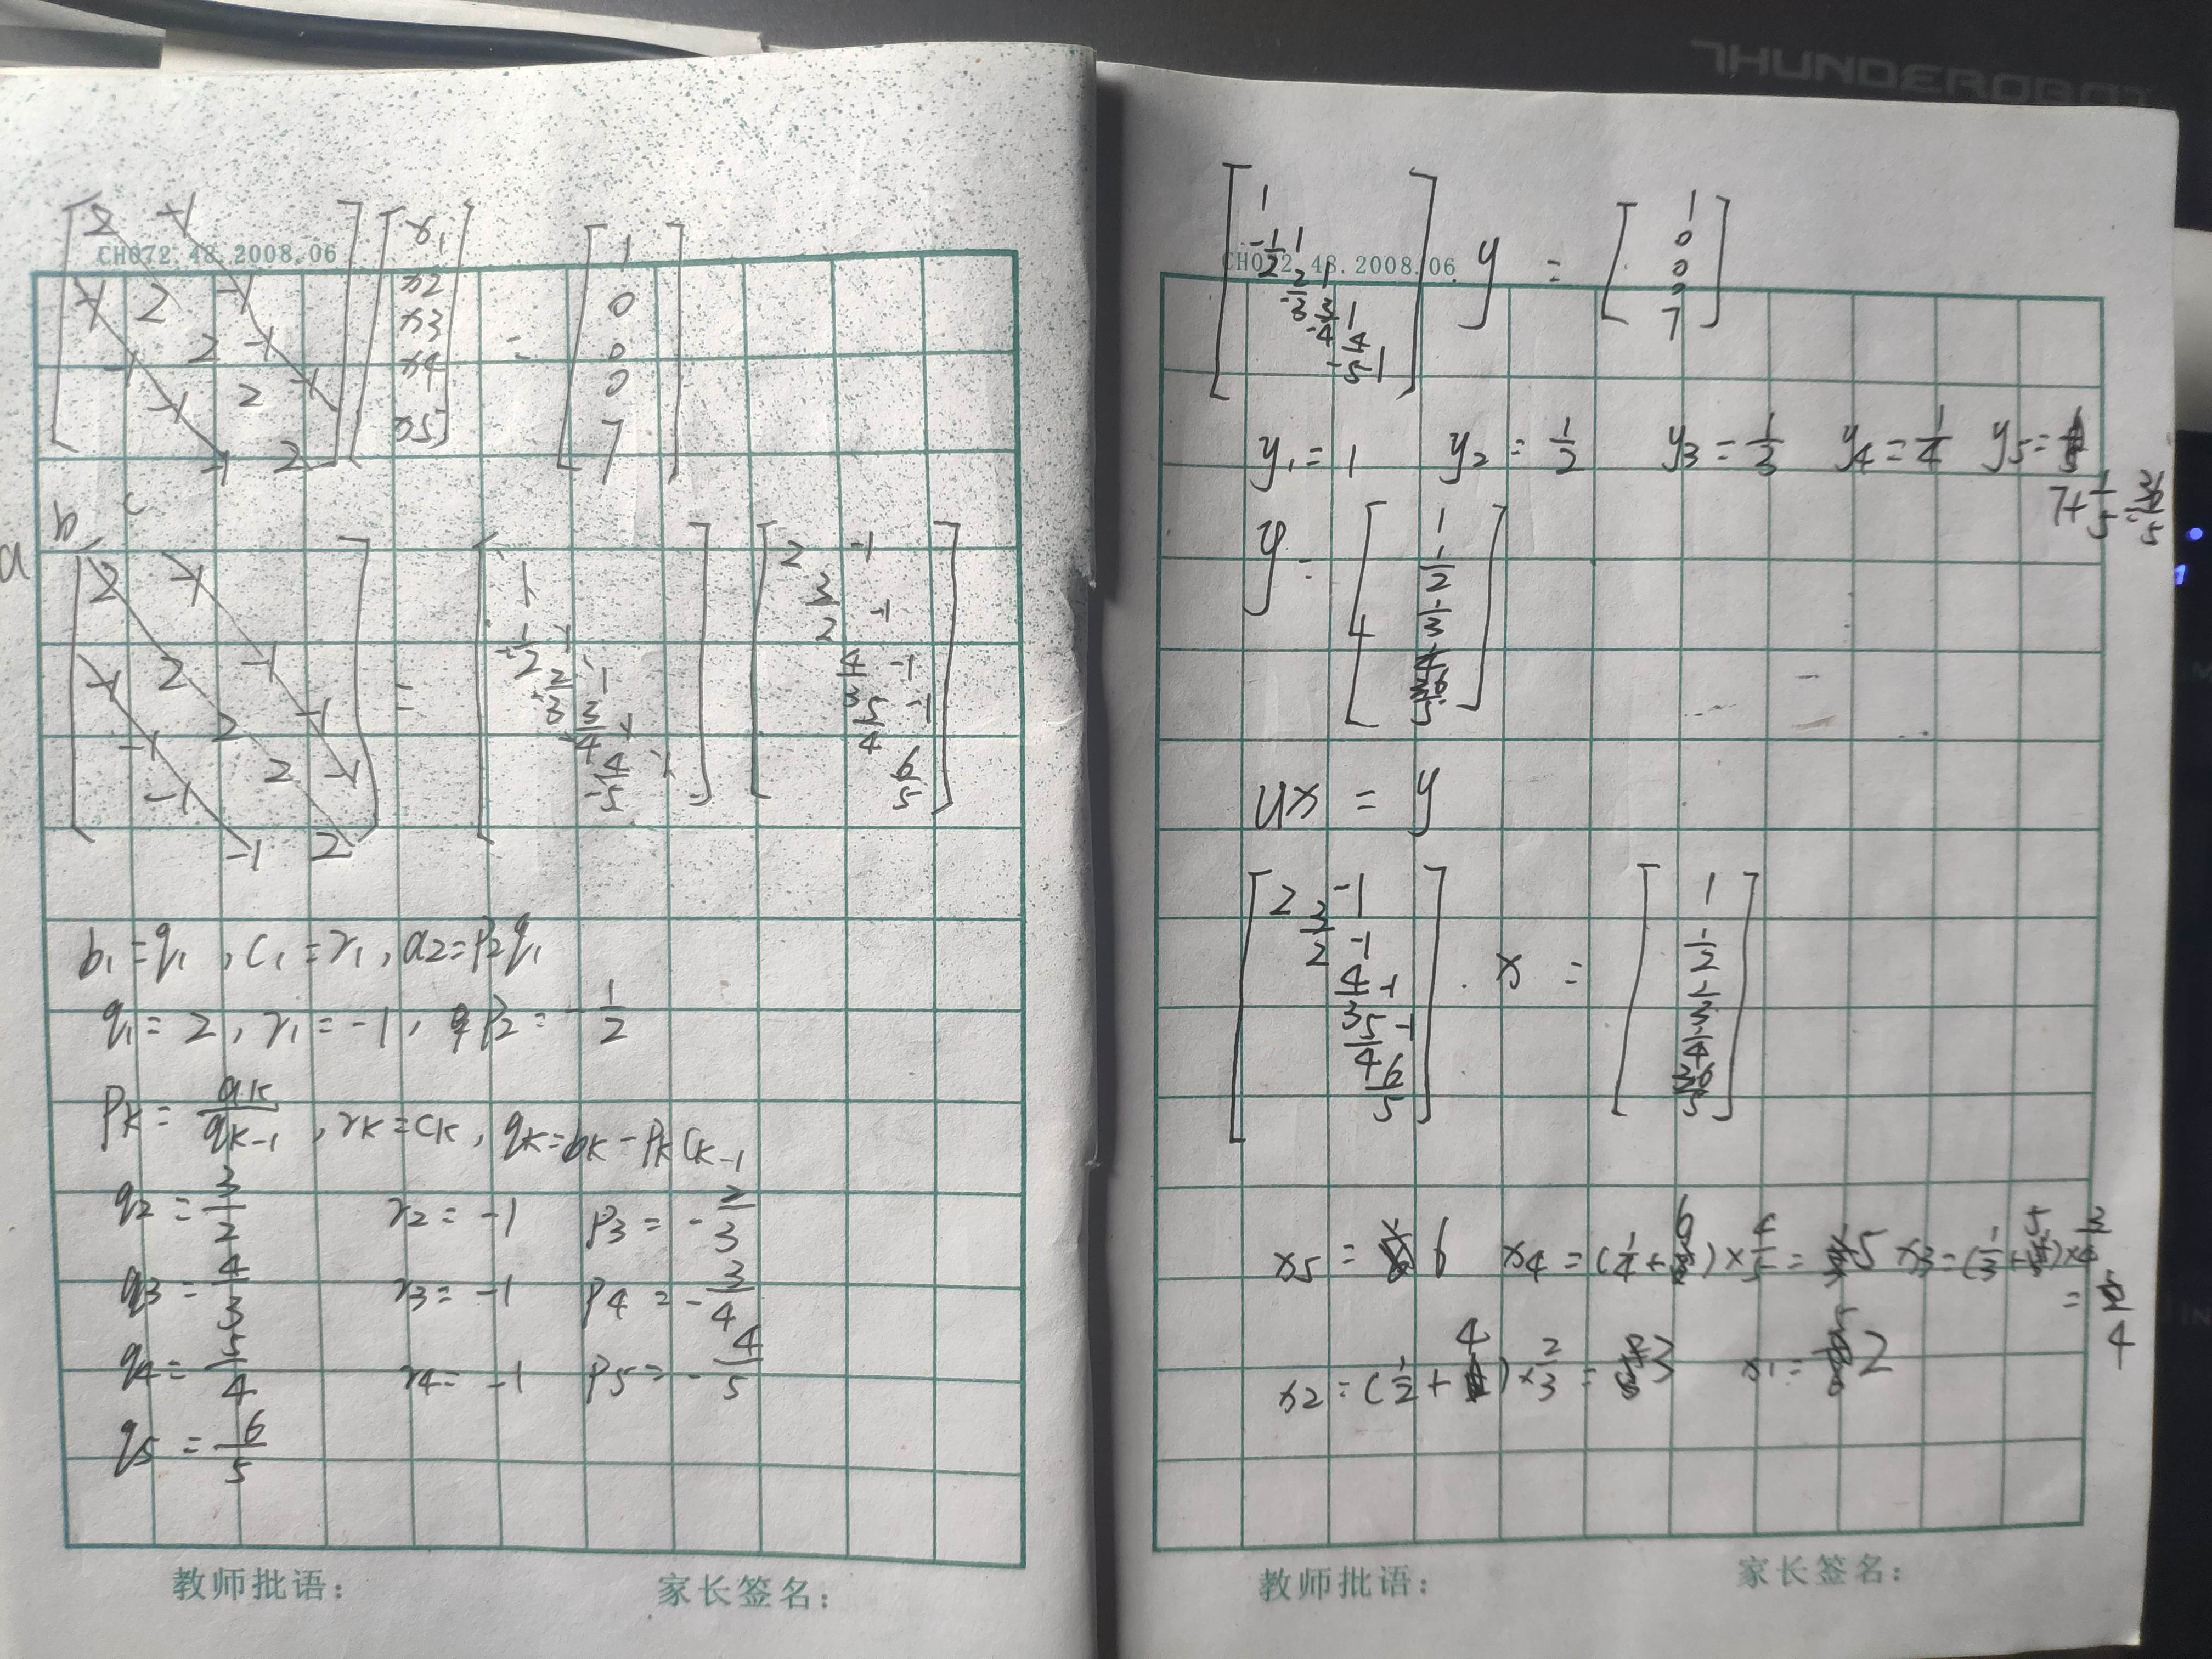 THUNDEROBOT
CH072.48.2008.06
2 -1
-1 2 -1
-1 2 -1
-1 2 -1
-1 2
x1
x2
x3
x4
x5
=
1
0
0
0
7
a b c
2 -1
-1 2 -1
-1 2 -1
-1 2 -1
-1 2
=
1
-1/2 1
-2/3 1
-3/4 1
-4/5 1
2 -1
3/2 -1
4/3 -1
5/4 -1
6/5
b1 = q1 , c1 = r1 , a2 = p2q1
q1 = 2 , r1 = -1 , p2 = -1/2
pk = ak/qk-1 , rk = ck , qk = bk - pk ck-1
q2 = 3/2 r2 = -1 p3 = -2/3
q3 = 4/3 r3 = -1 p4 = -3/4
q4 = 5/4 r4 = -1 p5 = -4/5
q5 = 6/5
教师批语： 家长签名：
CH072.48.2008.06
1
-1/2 1
-2/3 1
-3/4 1
-4/5 1
· y =
1
0
0
0
7
y1 = 1 y2 = 1/2 y3 = 1/3 y4 = 1/4 y5 =
7+1/5 = 36/5
y =
1
1/2
1/3
1/4
36/5
ux = y
2 -1
3/2 -1
4/3 -1
5/4 -1
6/5
· x =
1
1/2
1/3
1/4
36/5
x5 = 6 x4 = (1/4 + 6) × 4/5 = 5 x3 = (1/3 + 5) × 3/4
= 4
x2 = (1/2 + 4) × 2/3 = 3 x1 = 2
教师批语： 家长签名：